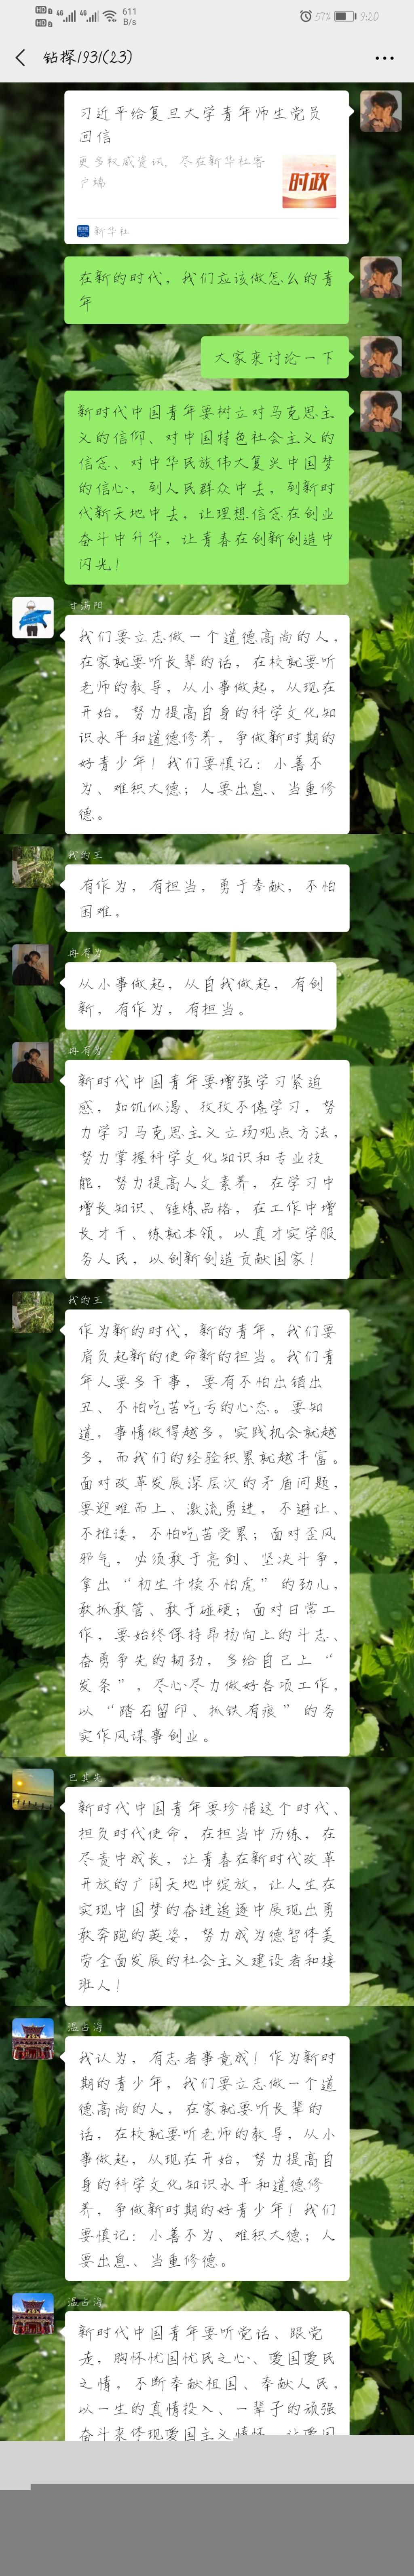 611 B/s
57% 9:20
钻探1931(23)
习近平给复旦大学青年师生党员
回信
更多权威资讯，尽在新华社客
户端
时政
新华社
在新的时代，我们应该做怎么的青
年
大家来讨论一下
新时代中国青年要树立对马克思主
义的信仰、对中国特色社会主义的
信念、对中华民族伟大复兴中国梦
的信心，到人民群众中去，到新时
代新天地中去，让理想信念在创业
奋斗中升华，让青春在创新创造中
闪光！
甘满阳
我们要立志做一个道德高尚的人，
在家就要听长辈的话，在校就要听
老师的教导，从小事做起，从现在
开始，努力提高自身的科学文化知
识水平和道德修养，争做新时期的
好青少年！我们要慎记：小善不
为、难积大德；人要出息、当重修
德。
我的王
有作为，有担当，勇于奉献，不怕
困难，
冉有为
从小事做起，从自我做起，有创
新，有作为，有担当。
冉有为
新时代中国青年要增强学习紧迫
感，如饥似渴、孜孜不倦学习，努
力学习马克思主义立场观点方法，
努力掌握科学文化知识和专业技
能，努力提高人文素养，在学习中
增长知识、锤炼品格，在工作中增
长才干、练就本领，以真才实学服
务人民，以创新创造贡献国家！
我的王
作为新的时代，新的青年，我们要
肩负起新的使命新的担当。我们青
年人要多干事，要有不怕出错出
丑、不怕吃苦吃亏的心态。要知
道，事情做得越多，实践机会就越
多，而我们的经验积累就越丰富。
面对改革发展深层次的矛盾问题，
要迎难而上、激流勇进，不避让、
不推诿，不怕吃苦受累；面对歪风
邪气，必须敢于亮剑、坚决斗争，
拿出“初生牛犊不怕虎”的劲儿，
敢抓敢管、敢于碰硬；面对日常工
作，要始终保持昂扬向上的斗志、
奋勇争先的韧劲，多给自己上“
发条”，尽心尽力做好各项工作，
以“踏石留印、抓铁有痕”的务
实作风谋事创业。
巴其先
新时代中国青年要珍惜这个时代、
担负时代使命，在担当中历练，在
尽责中成长，让青春在新时代改革
开放的广阔天地中绽放，让人生在
实现中国梦的奋进追逐中展现出勇
敢奔跑的英姿，努力成为德智体美
劳全面发展的社会主义建设者和接
班人！
温占海
我认为，有志者事竟成！作为新时
期的青少年，我们要立志做一个道
德高尚的人，在家就要听长辈的
话，在校就要听老师的教导，从小
事做起，从现在开始，努力提高自
身的科学文化知识水平和道德修
养，争做新时期的好青少年！我们
要慎记：小善不为、难积大德；人
要出息、当重修德。
温占海
新时代中国青年要听党话、跟党
走，胸怀忧国忧民之心、爱国爱民
之情，不断奉献祖国、奉献人民，
以一生的真情投入、一辈子的顽强
奋斗来体现爱国主义情怀，让爱国